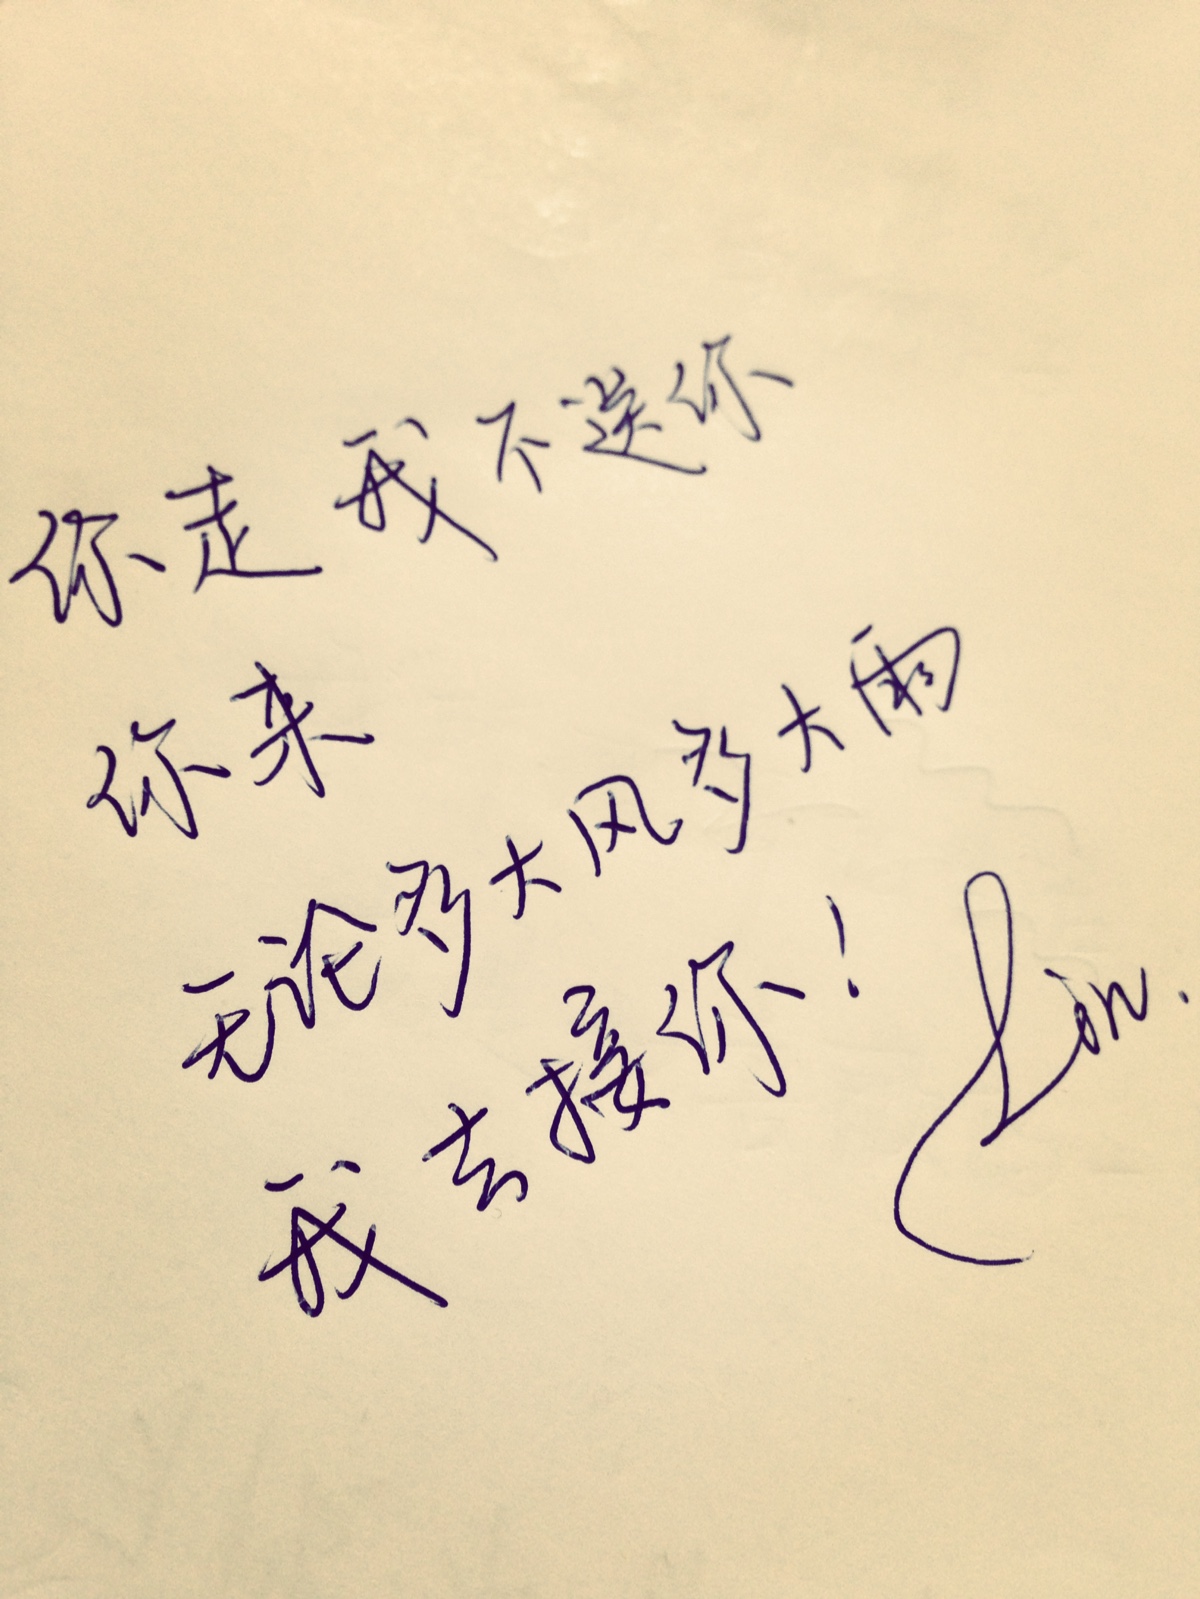 你走我不送你
你来
无论多大风多大雨
我去接你！
Lin.